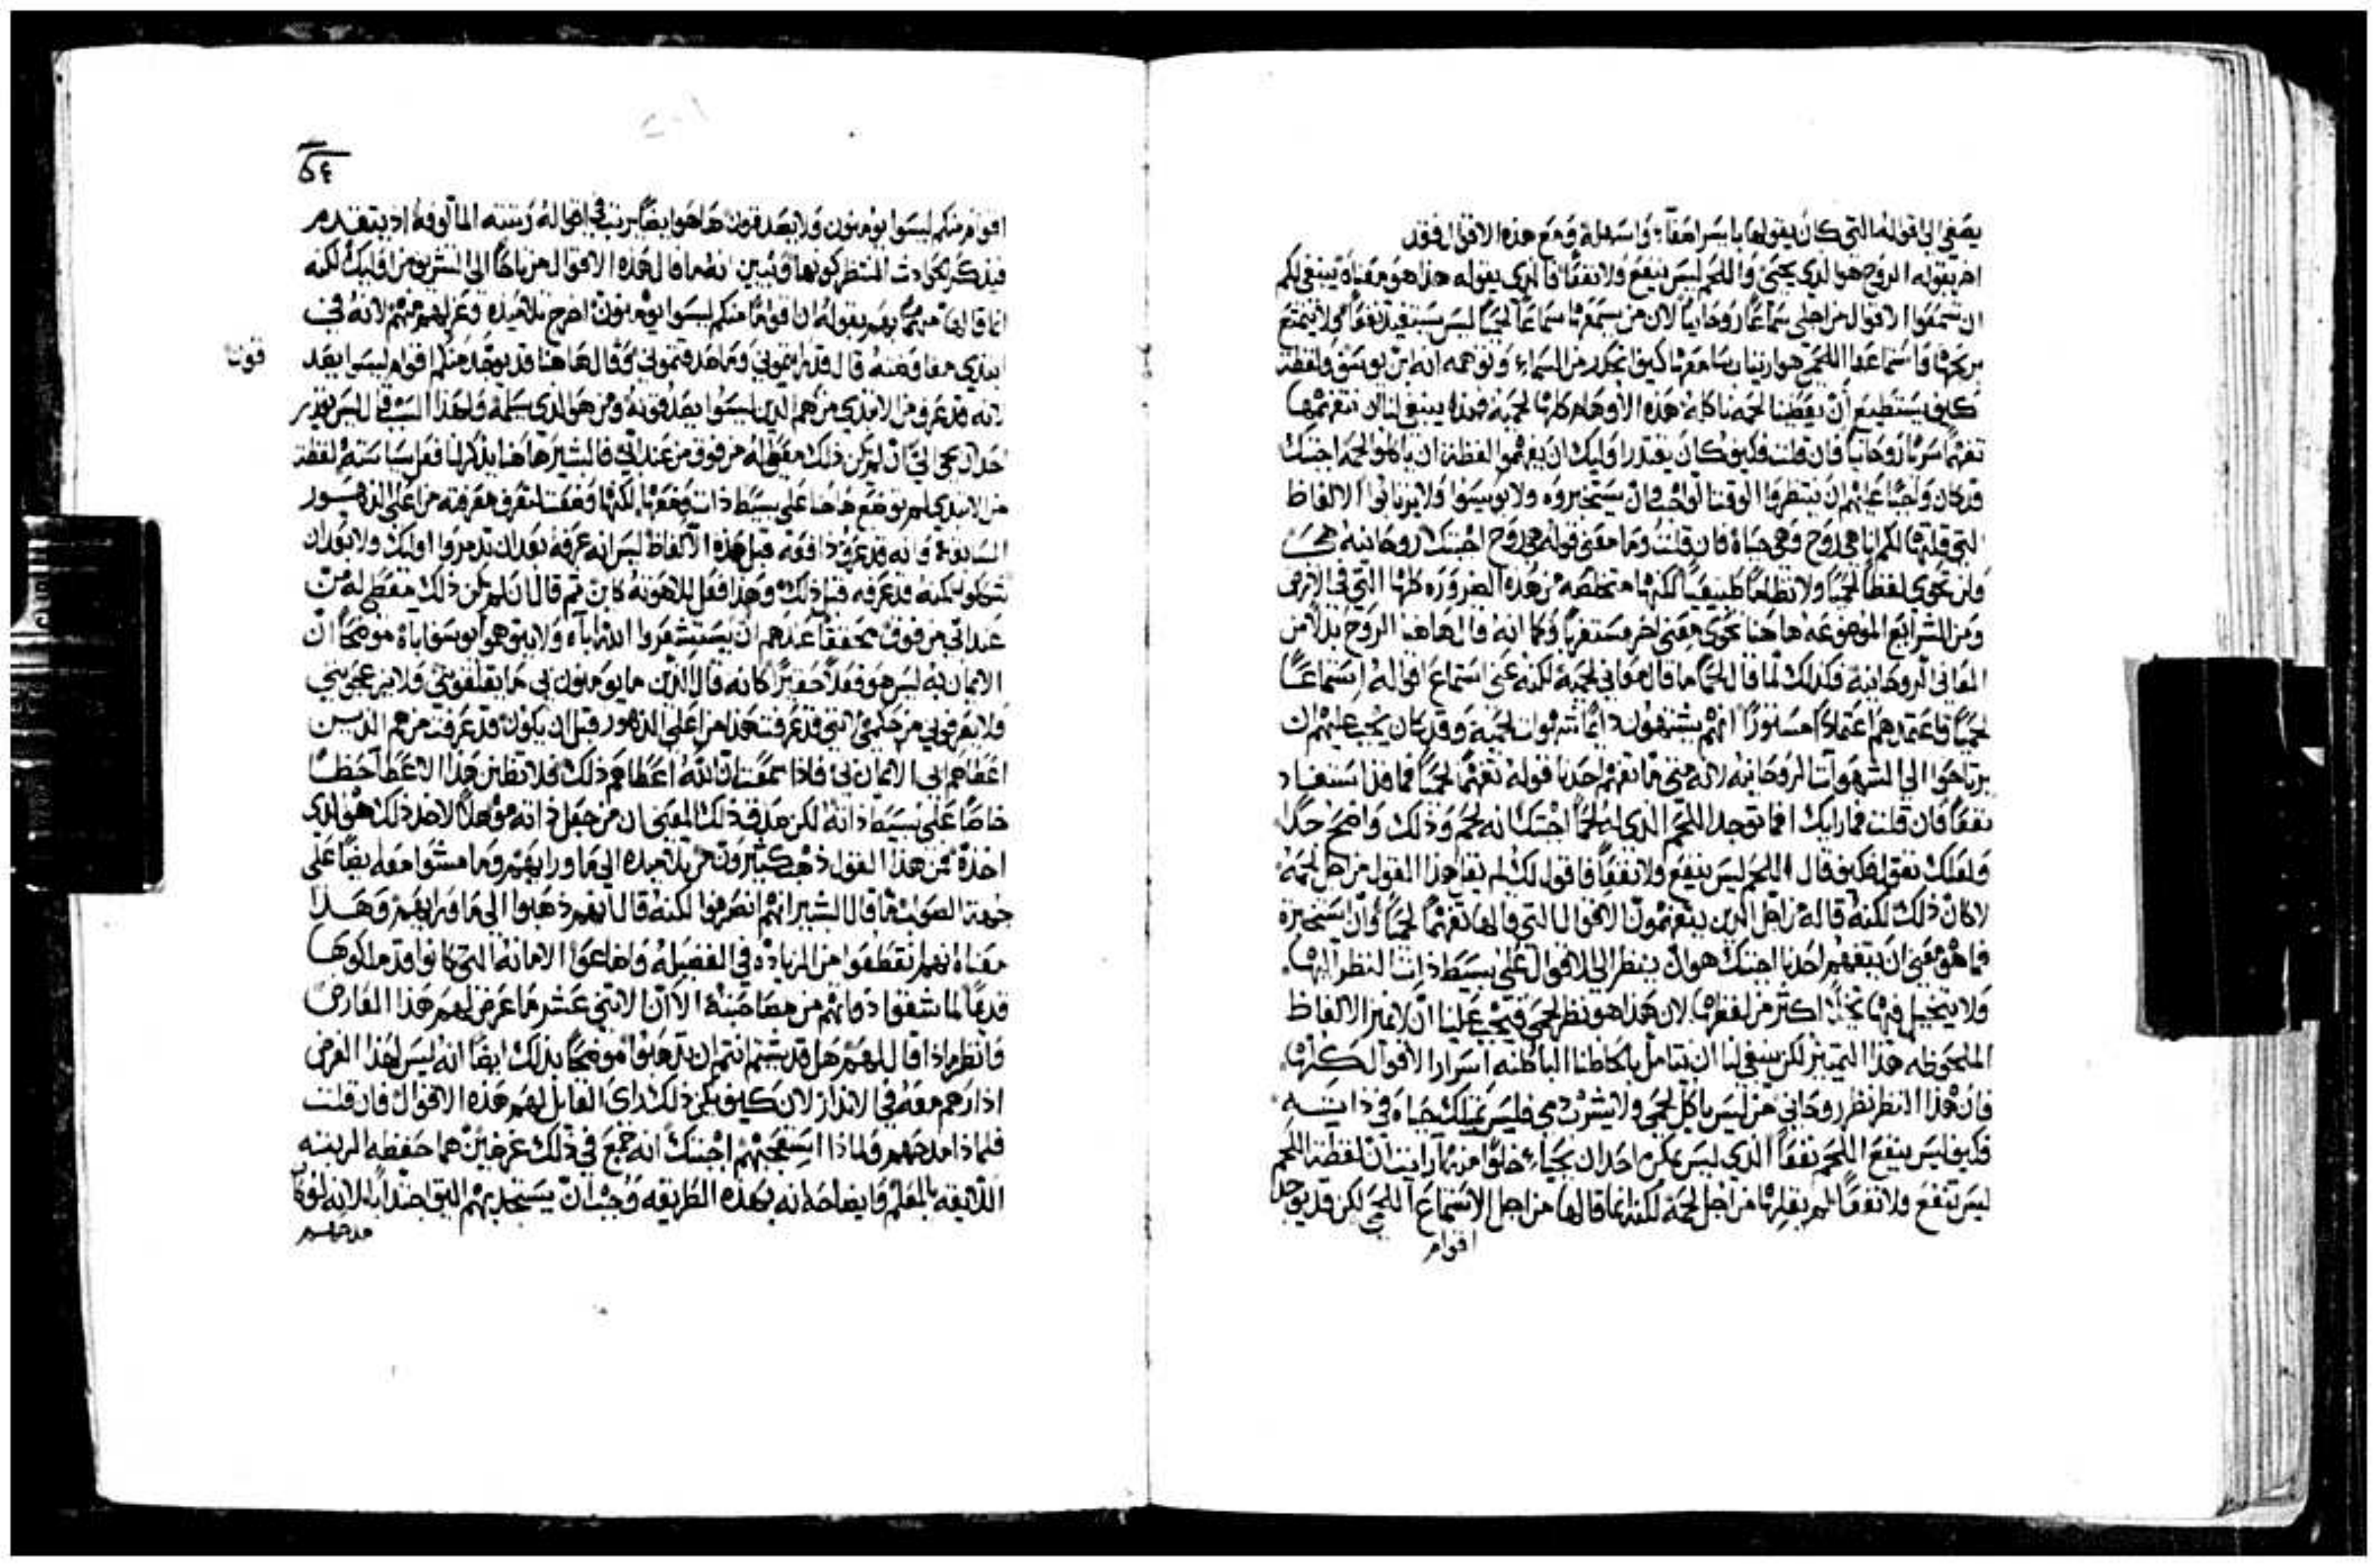 يصغي الى اقواله التي كان يقولها باسرامعًا، واستعلة ومع هذه الاقوال فقد
اخر بقوله الروح هو الذي يحيى واللحم ليس ينفع ولا نفعًا فالذي يقوله هذا هو معناه ينبغي لكم
ان تسمعوا الاقوال من اجلي سماعًا روحانيًا لان من يسمعها سماعًا لحميًا ليس يستفيد نفعًا ولا يتمتع
بربحها فاستماعهم اللحمي هو ارتيابنا معرفا كيف انحدر من السماء وتوهمه انه ابن يوسف ولفظة
كيف يستطيع ان يعطينا لحمه ناكله هذه الاوهام كلها لحمية فهذه ينبغي لنا ان نتفهمها
تفهمًا سريًا روحانيًا فان قلت فكيف كان يقتدر اوليك ان يفهموا لفظة ان ياكلوا لحمه اجبتك
قد كان واجبًا عليهم ان ينتظروا الوقت الواجب وان يستخبروه ولا يويسوا ولا يرتابوا الالفاظ
التي قلتها لكم انا هي روح وهي حياة فان قلت وما معنى قوله هي روح اجبتك روحانية هي
وليس تحوي لفظًا لحميًا ولا نظامًا طبيعيًا لكنها متخلصة من هذه الضرورة كلها التي في الارض
ومن الشرايع الموضوعه هاهنا تحوي معنى اخر مستغربًا وكما انه قال هاهنا الروح بدلًا من
المعاني الروحانية فكذلك لما قال لحمًا ما قال معاني لحمية لكنه عنى استماع اقواله استماعًا
لحميًا فاعتمدهم اعتمادًا مستورًا انهم يشتهون دايمًا شهوات لحمية وقد كان يجب عليهم ان
يرتاحوا الى الشهوات الروحانيه لانه متى ما تفهم احدنا قوله تفهمًا لحميًا فماذا يستفاد
نفعًا فان قلت فما رايك افما توجد اللحم الذي له لحمًا اجبتك انه لحم وذلك واضح جدًا
ولعلك تقول فكيف قال اللحم ليس ينفع ولا نفعًا فاقول لك لم يقل هذا القول من اجل لحمه
لا كان ذلك لكنه قاله من اجل الذين يتفهمون الاقوال التي قالها تفهمًا لحميًا وان استخبرت
فما هو معنى ان يتفهم احدنا اجبتك هو ان ينظر الى الاقوال على بسيط ذات النظر اليها
ولا يتخيل فيها تخيلًا اكثر من لفظها لان هذا هو نظر لحمي فيجب علينا ان لا نميز الالفاظ
الملحوظه هذا التمييز لكن ينبغي لنا ان نتامل بالحاظنا الباطنه اسرار الاقوال كلها
فان هذا النظر نظر روحاني من ليس ياكل لحمي ولا يشرب دمي فليس يمتلك حياه في ذاته
فكيف ليس ينفع اللحم نفعًا الذي ليس يمكن احدًا ان يحيا خلوًا منه ارايت ان لفظة اللحم
ليس تنفع ولا نفعًا لم يقلها من اجل لحمه لكنه انما قالها من اجل الاستماع اللحمي لكن قد يوجد
اقوام
٥٤
اقوام منكم ليسوا يومنون ولا يصدقون هاهو ايضًا يرتب في اقواله رتبته المالوفة اذ يتقدم
فيذكر الحوادث المنتظر كونها ويبين انه ما قال هذه الاقوال مرتاحًا الى التشريف من اوليك لكنه
انما قالها مهتمًا بهم بقوله ان اقوامًا منكم ليسوا يومنون اخرج تلاميذه وعزلهم منهم لانه في
ابتدي مفاوضته قال قد رايتموني وما صدقتموني وقال هاهنا قد يوجد منكم اقوام ليسوا يصد
قون
لانه قد عرف من الابتدي من هم الذين ليسوا يصدقونه ومن هو الذي يسلمه ولهذا السبب قال ليس يقدر
احد ان يجي الي ان لم يكن ذلك معطى له من فوق من عند ابي فالبشير هاهنا يذكر لنا فعل سياسته لفظة
من الابتدي لم توضع هاهنا على بسيط ذات وضعها لكنها وضعت لتعرف معرفته من اعلى الدهور
السابقة وانه قد عرف دافعه قبل هذه الالفاظ ليس انه عرفه بعد ان تذمروا اوليك ولا بعد ان
شكوا لكنه قد عرفه قبل ذلك وهذا فعل للاهوته كاين ثم قال ان لم يكن ذلك معطى له من
عند ابي من فوق محققًا عندهم ان يستشعروا الله اباه ولا يتوهموا يوسف اباه موضحًا ان
الايمان به ليس هو فعلًا حقيرًا كانه قال الذين ما يومنون بي ما يقلقونني ولا يزعجونني
ولا يغرفوني من حكمتي التي قد عرفت هذا من اعلى الدهور قبل ان يكون قد عرفت من هم الذين
اعطاهم ابي الايمان بي فاذا سمعت ان الله اعطاهم ذلك فلا تظن هذا الاعطا حظًا
خاصًا على بسيط ذاته لكن صدق ذلك المعنى ان من جعل ذاته موهلًا لاخذ ذلك هو الذي
اخذه فمن هذا القول ذهب كثيرون من تلاميذه الى ما ورايهم وما مشوا معه ايضًا على
جهة الصواب ما قال البشير انهم انصرفوا لكنه قال انهم ذهبوا الى ما ورايهم وهذا
معناه انهم انقطعوا من الزيادة في الفضيلة واضاعوا الامانة التي كانوا قد ملكوها
قديمًا لما شفقوا ذواتهم من مصاحبته الا ان الاثني عشر ما عرض لهم هذا العارض
فانظر ماذا قال لهم هل قد شيتم انتم ان تذهبوا موضحًا بذلك ايضًا انه ليس لهذا الغرض
ادارهم معه في الانذار لان كيف يكن ذلك راى القايل لهم هذه الاقوال فان قلت
فلماذا مدحهم ولماذا استعجبهم اجبتك انه جمع في ذلك غرضين هما حفظه المرتبه
اللايقه بالمعلم وايضاحه انه بهذه الطريقه وجب ان يستجذبهم التي اجتذبها لانه لو كان
مدحهم